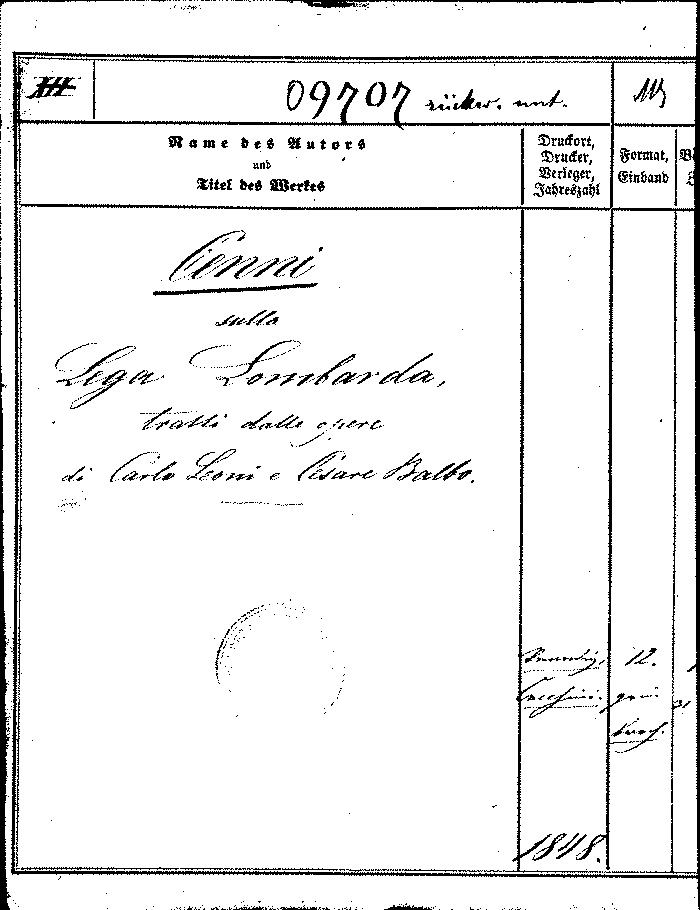 09707 rückw. unt.
Name des Autors
und
Titel des Werkes
Druckort,
Drucker,
Verleger,
Jahreszahl
Format,
Einband
Cenni
sulla
Lega Lombarda,
tratti dalle opere
di Carlo Leoni e Cesare Balbo.
Venedig, 12.
Cecchini.
1848.